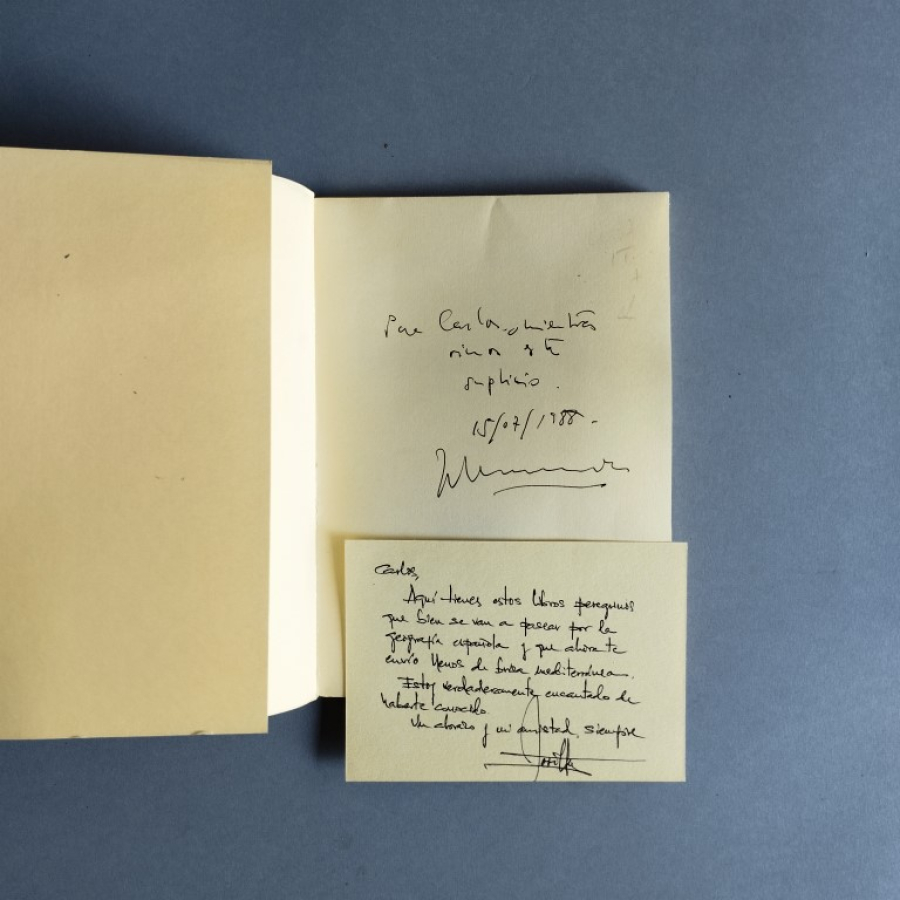 Para Carlos, mientras
suplicio.
15/07/1988.
Carlos,
Aquí tienes estos libros peregrinos
que bien se van a pasear por la
geografía española y que ahora te
envío llenos de brisa mediterránea.
Estoy verdaderamente encantado de
haberte conocido.
Un abrazo y mi amistad, siempre